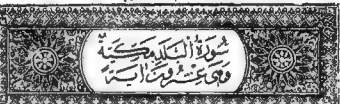 سورة البلد مكية
وهي عشرون آية